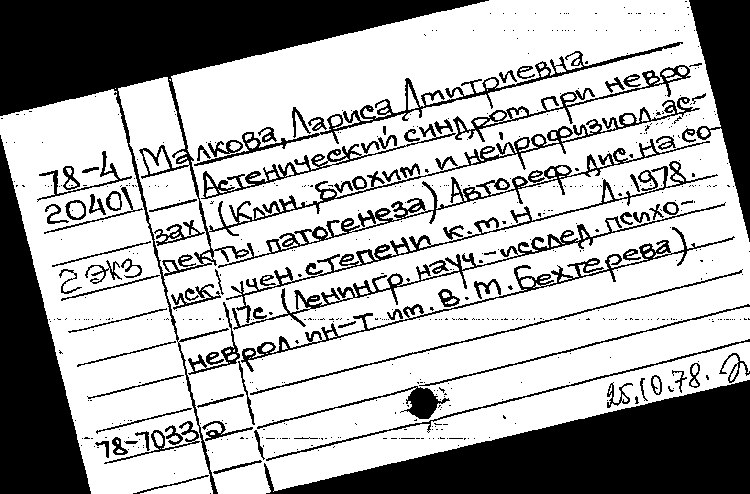 Малкова, Лариса Дмитриевна
78-4 Астенический синдром при невро-
20401 зах. (Клин., биохим. и нейрофизиол. ас-
пекты патогенеза). Автореф. дис. на со-
2 экз иск. учен. степени к.м.н. Л., 1978.
17с. (Ленингр. науч.-исслед. психо-
неврол. ин-т им. В.М.Бехтерева).
78-7033
25.10.78.